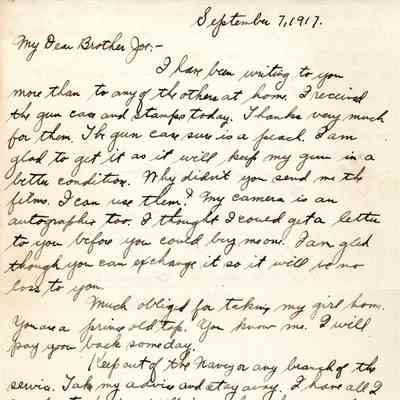 September 7, 1917.
My Dear Brother Joe:-
I have been writing to you
more than to any of the others at home. I received
the gun case and stamps today. Thanks very much
for them. The gun case sure is a peach. I am
glad to get it as it will keep my gun in a
better condition. Why didn't you send me the
films. I can use them? My camera is an
autographic too. I thought I could get a letter
to you before you could buy me one. I am glad
though you can exchange it so it will be no
loss to you.
Much obliged for taking my girl home.
You are a prince old top. You know me. I will
pay you back some day.
Keep out of the Navy or any branch of the
servis. Take my advice and stay away. I have all I